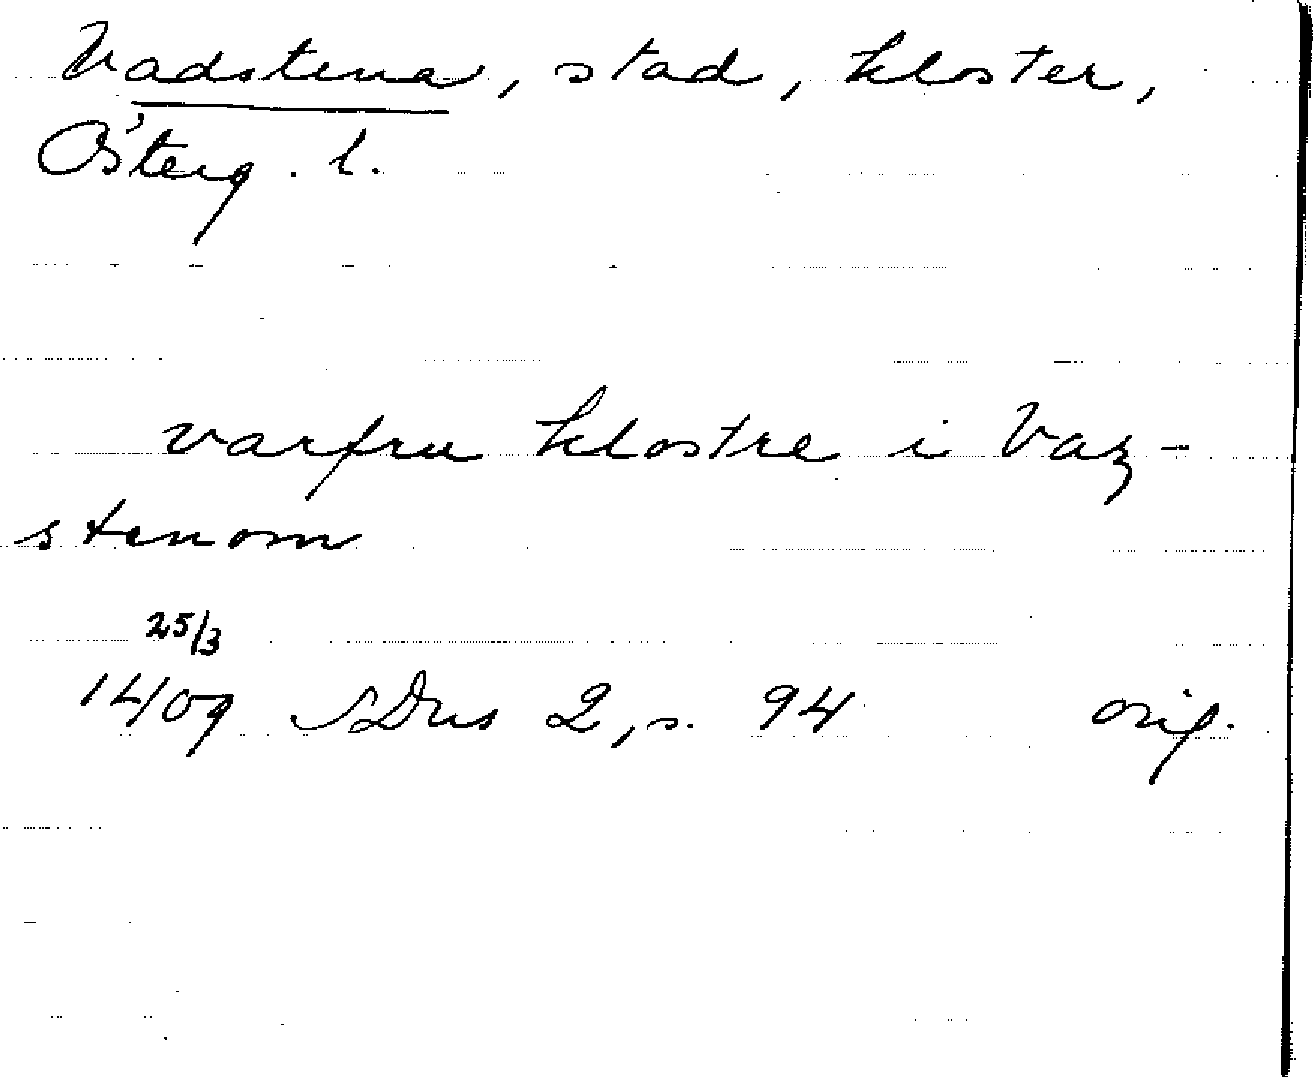 Vadstena, stad, kloster,
Österg. l.
varfru klostre i Vaz-
stenom
25/3
1409 SDns 2, s. 94 orig.